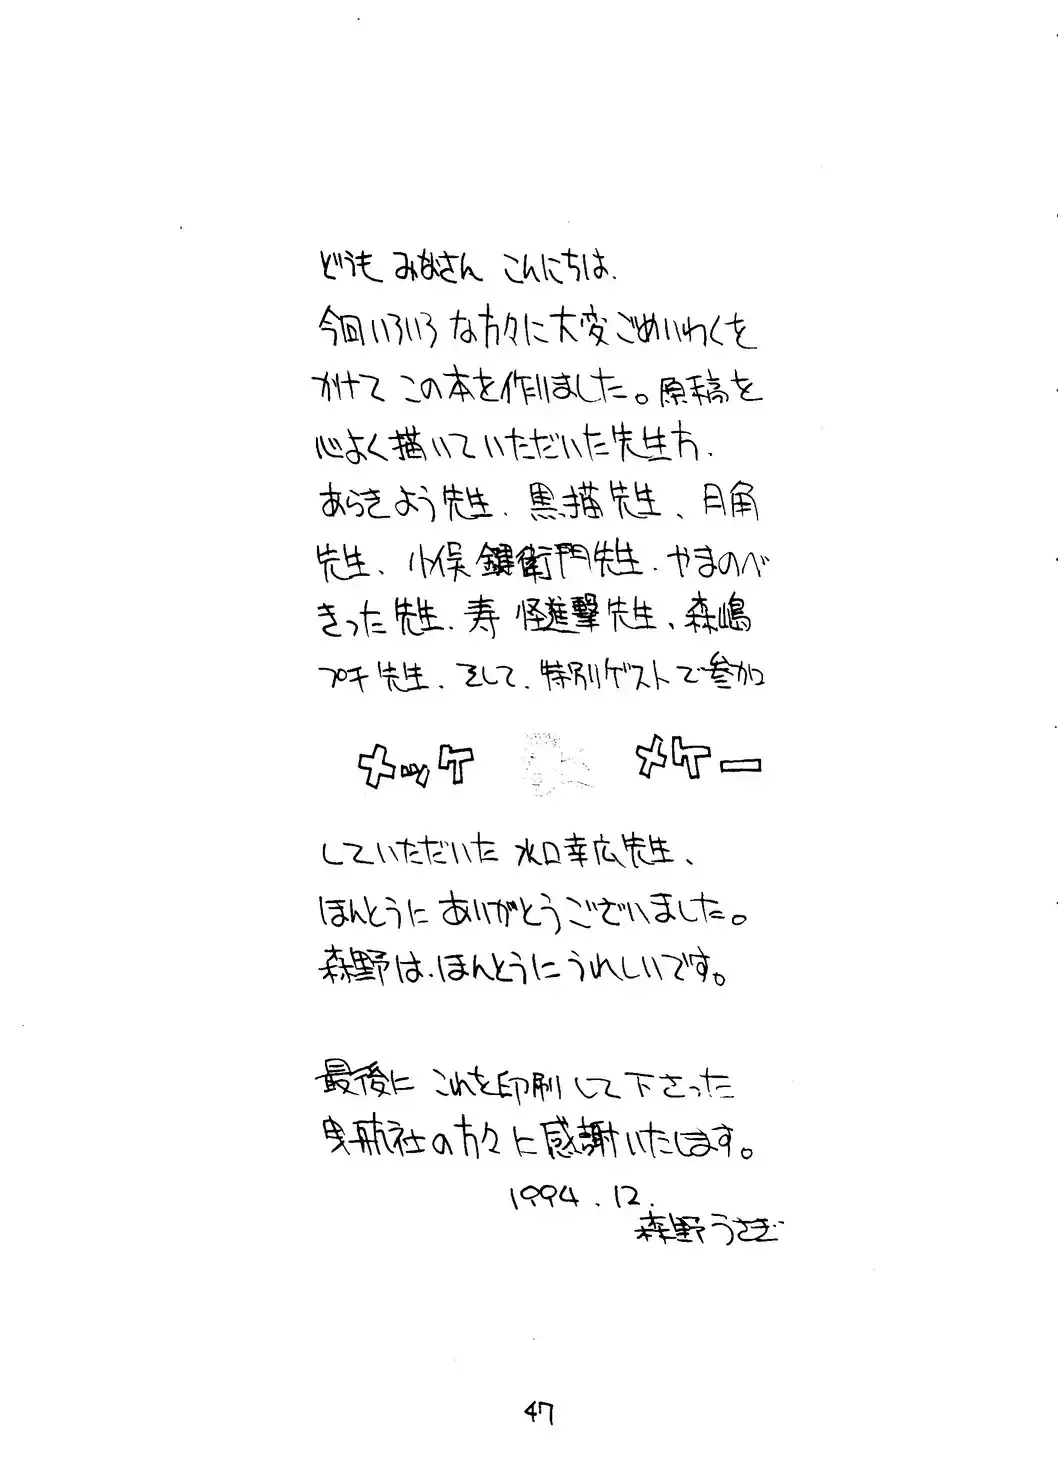 どうも みなさん こんにちは.
今回いろいろな方々に大変ごめいわくを
かけて この本を作りました。原稿を
心よく描いていただいた先生方.
あらきよう先生、黒猫先生、月角
先生、小俣 鍵衛門先生、やまのべ
きった先生、寿 怪進撃先生、森嶋
プチ先生、そして、特別ゲストで参加
メッケ メケー
していただいた 水口幸広先生、
ほんとうに ありがとうございました。
森野は、ほんとうにうれしいです。
最後に これを印刷して下さった
曳航社の方々に感謝いたします。
1994.12.
森野うさぎ
47